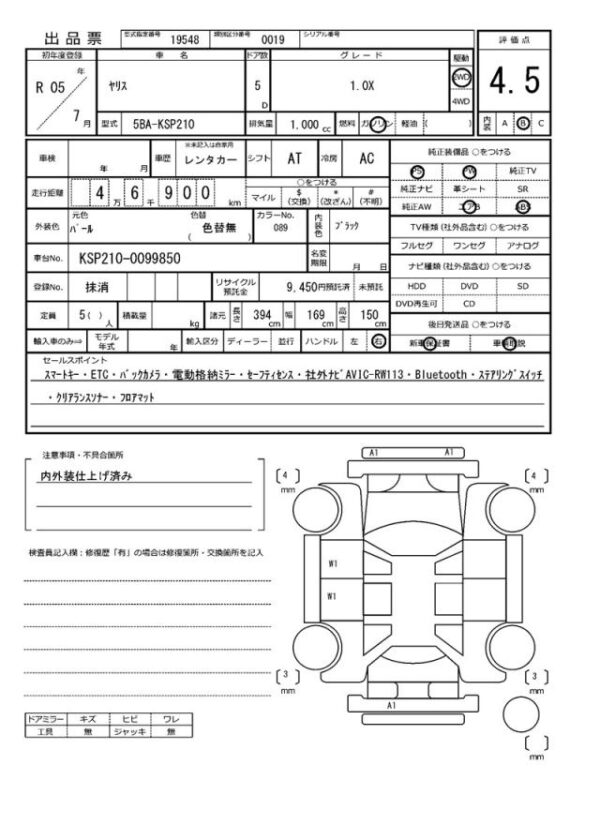 出品票 型式指定番号 19548 類別区分番号 0019 シリアル番号
評価点
初年度登録 車名 ドア数 グレード 駆動
R 05 年 7 月 ヤリス 5 D 1.0X 2WD 4WD
4.5
型式 5BA-KSP210 排気量 1,000 cc 燃料 ガソリン 軽油 ( )
内装 A B C
車検 年 月 車歴 ※未記入は自家用 レンタカー シフト AT 冷房 AC
純正装備品 ○をつける
PS PW 純正TV
純正ナビ 革シート SR
純正AW エアB ABS
走行距離 4万6千900 km
○をつける
マイル $ (交換) * (改ざん) # (不明)
外装色 元色 パール 色替 ( 色替無 ) カラーNo. 089 内装色 ブラック
TV種類 (社外品含む) ○をつける
フルセグ ワンセグ アナログ
車台No. KSP210-0099850 名変期限 月 日
ナビ種類 (社外品含む) ○をつける
HDD DVD SD
DVD再生可 CD
登録No. 抹消 リサイクル預託金 9,450円預託済 未預託
定員 5( ) 人 積載量 kg 諸元 長さ 394 cm 幅 169 cm 高さ 150 cm
後日発送品 ○をつける
新車保証書 車輌取説
輸入車のみ⇒ モデル年式 年 輸入区分 ディーラー 並行 ハンドル 左 右
セールスポイント
スマートキー・ETC・バックカメラ・電動格納ミラー・セーフティセンス・社外ナビAVIC-RW113・Bluetooth・ステアリングスイッチ
・クリアランスソナー・フロアマット
注意事項・不具合箇所
内外装仕上げ済み
検査員記入欄：修復歴「有」の場合は修復箇所・交換箇所を記入
A1 A1
4 mm
4 mm
W1
W1
3 mm
3 mm
A1
mm
ドアミラー キズ ヒビ ワレ
工具 無 ジャッキ 無